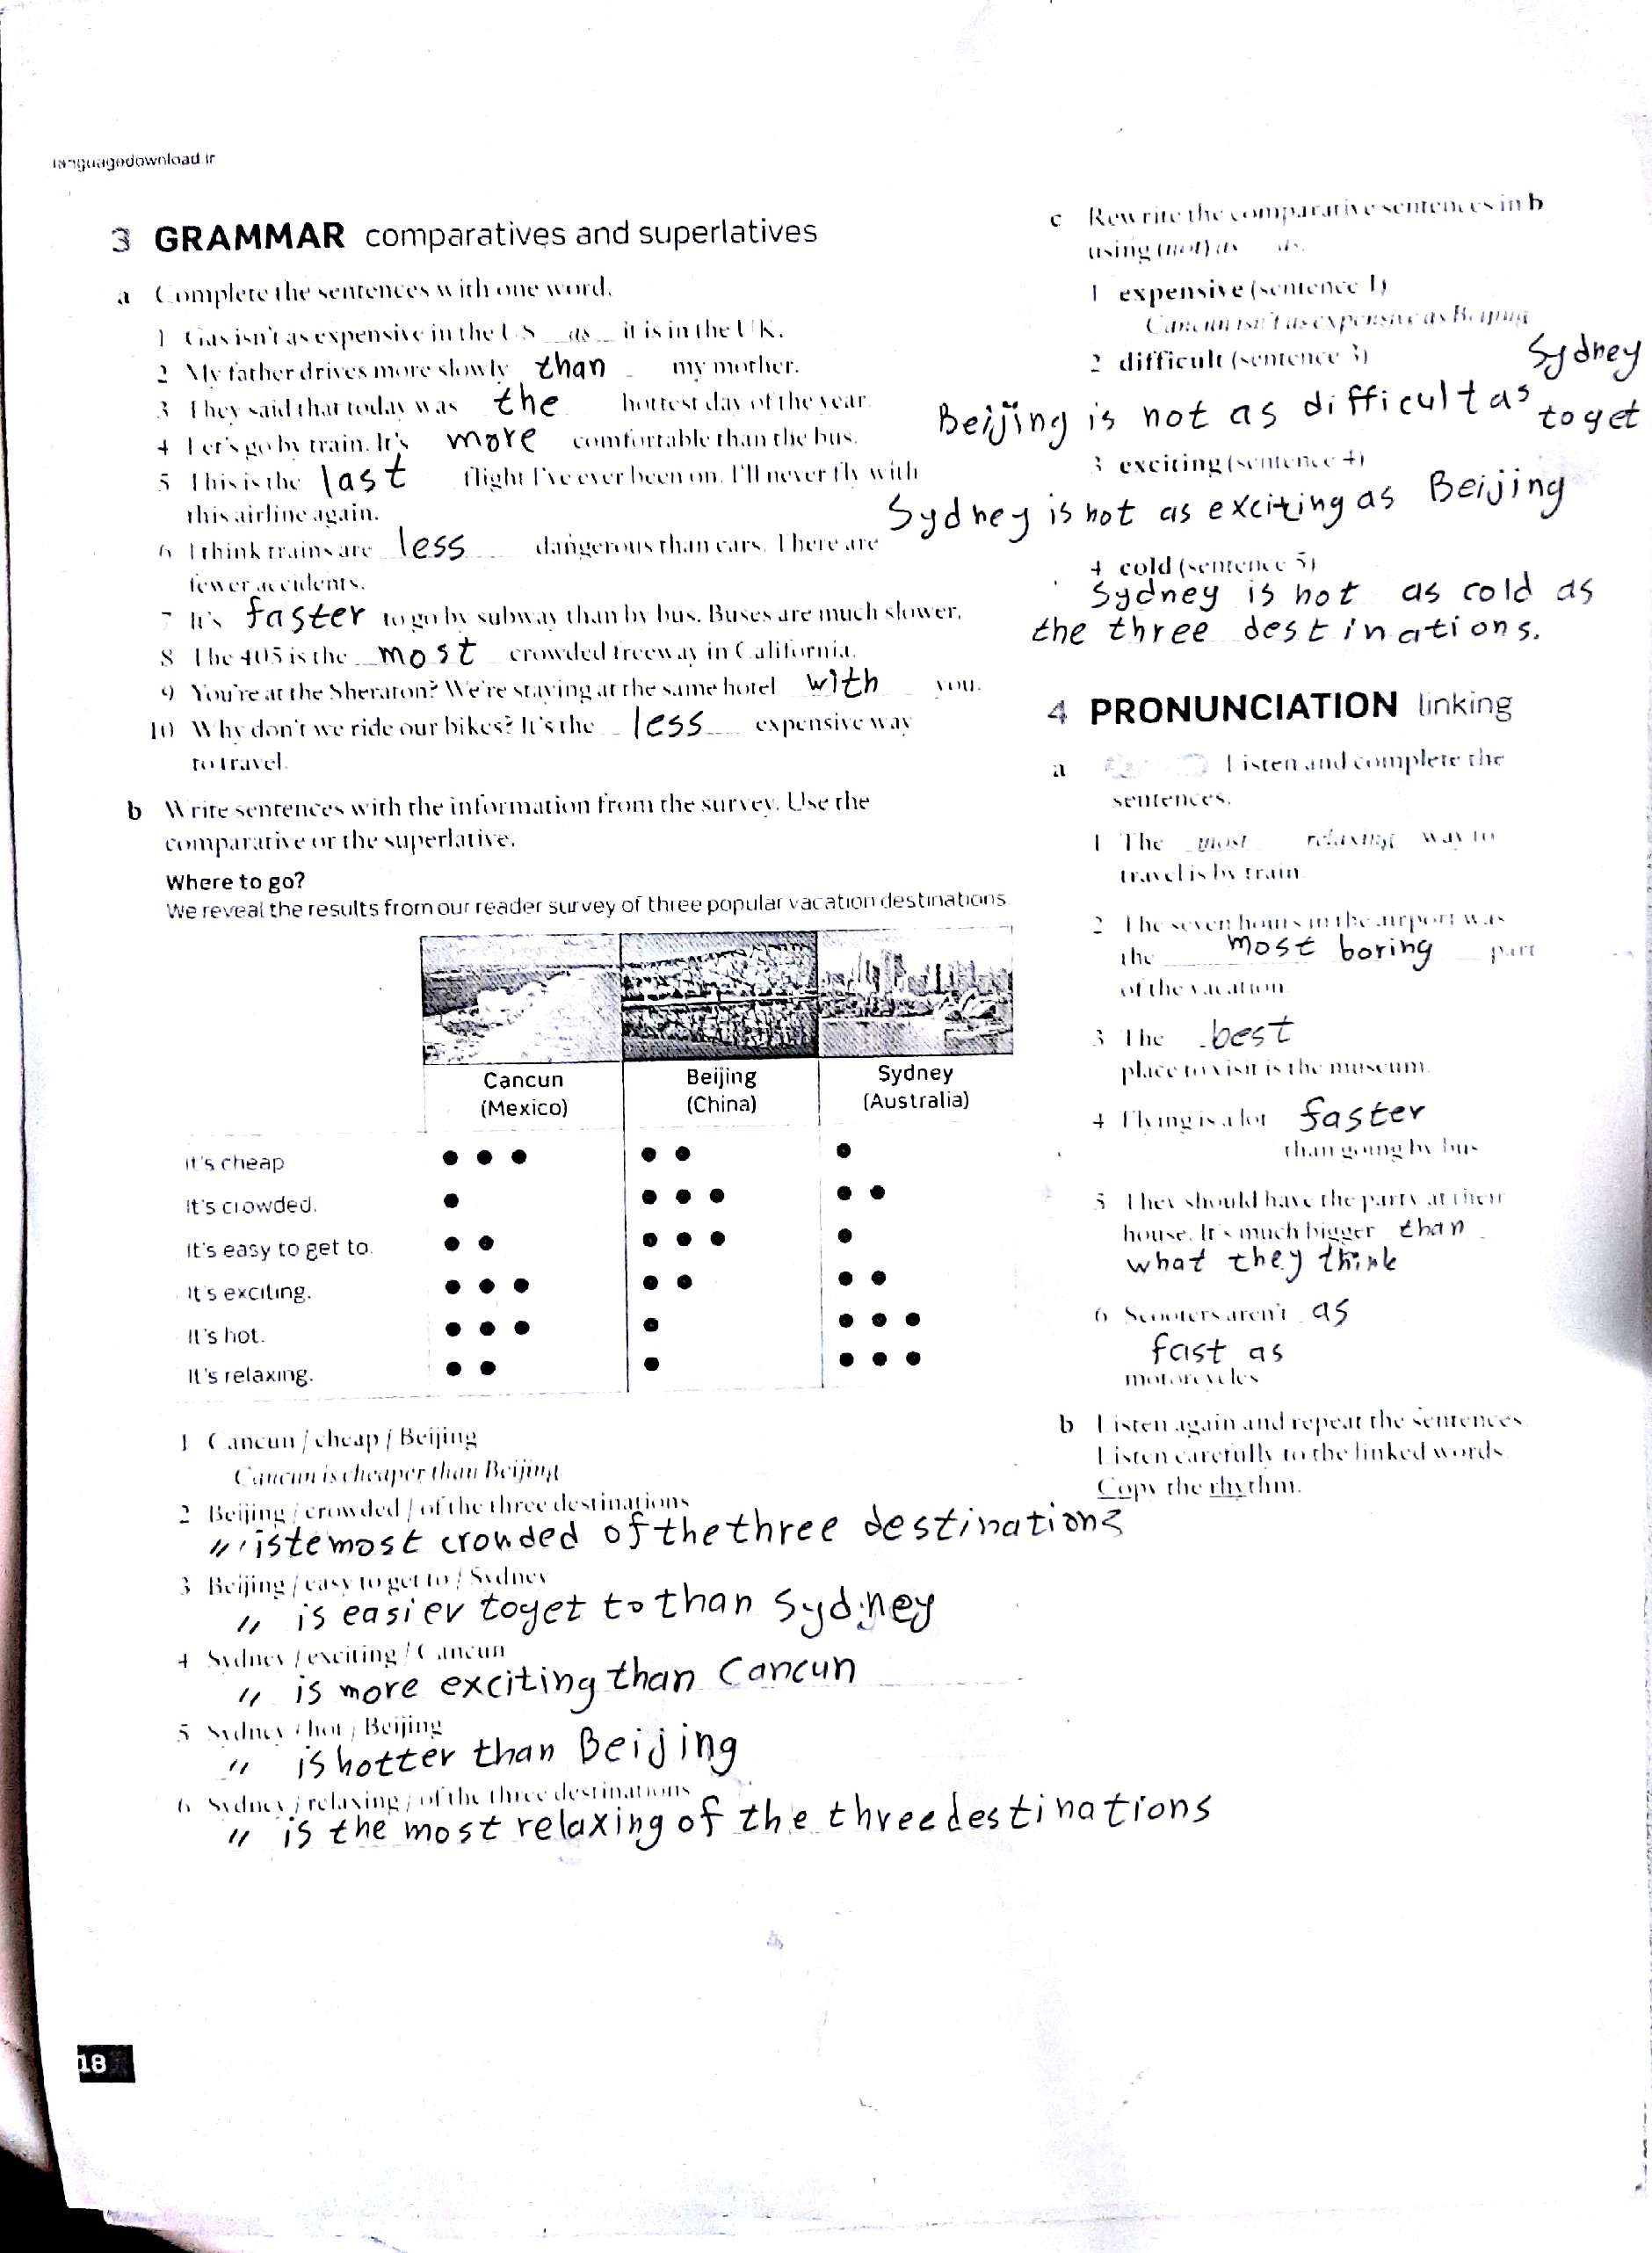 languagedownload.ir
3 GRAMMAR comparatives and superlatives
a Complete the sentences with one word.
1 Gas isn't as expensive in the US as it is in the UK.
2 My father drives more slowly than my mother.
3 They said that today was the hottest day of the year.
4 Let's go by train. It's more comfortable than the bus.
5 This is the last flight I've ever been on. I'll never fly with
this airline again.
6 I think trains are less dangerous than cars. There are
fewer accidents.
7 It's faster to go by subway than by bus. Buses are much slower.
8 The 405 is the most crowded freeway in California.
9 You're at the Sheraton? We're staying at the same hotel with you.
10 Why don't we ride our bikes? It's the less expensive way
to travel.
b Write sentences with the information from the survey. Use the
comparative or the superlative.
Where to go?
We reveal the results from our reader survey of three popular vacation destinations.
Cancun
(Mexico)
Beijing
(China)
Sydney
(Australia)
It's cheap
It's crowded.
It's easy to get to.
It's exciting.
It's hot.
It's relaxing.
1 Cancun / cheap / Beijing
Cancun is cheaper than Beijing
2 Beijing / crowded / of the three destinations
" is te most crowded of the three destinations
3 Beijing / easy to get to / Sydney
" is easier to get to than Sydney
4 Sydney / exciting / Cancun
" is more exciting than Cancun
5 Sydney / hot / Beijing
" is hotter than Beijing
6 Sydney / relaxing / of the three destinations
" is the most relaxing of the three destinations
18
c Rewrite the comparative sentences in b
using (not) as as.
1 expensive (sentence 1)
Cancun isn't as expensive as Beijing
2 difficult (sentence 3)
Beijing is not as difficult as Sydney
to get
3 exciting (sentence 4)
Sydney is not as exciting as Beijing
4 cold (sentence 5)
Sydney is not as cold as
the three destinations.
4 PRONUNCIATION linking
a Listen and complete the
sentences.
1 The most relaxing way to
travel is by train.
2 The seven hours in the airport was
the most boring part
of the vacation.
3 The best
place to visit is the museum.
4 Flying is a lot faster
than going by bus
5 They should have the party at their
house. It's much bigger than
what they think
6 Scooters aren't as
fast as
motorcycles
b Listen again and repeat the sentences.
Listen carefully to the linked words.
Copy the rhythm.